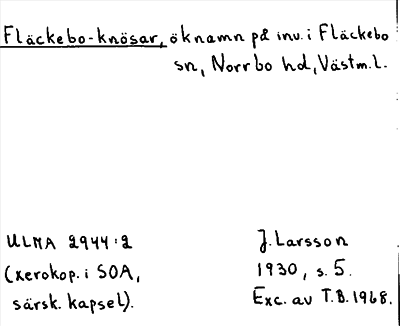 Fläckebo-knösar, öknamn på inv. i Fläckebo
sn, Norrbo hd, Västm.l.
ULMA 2944:2
(xerokop. i SOA,
särsk. kapsel).
J. Larsson
1930, s. 5.
Exc. av T.B. 1968.